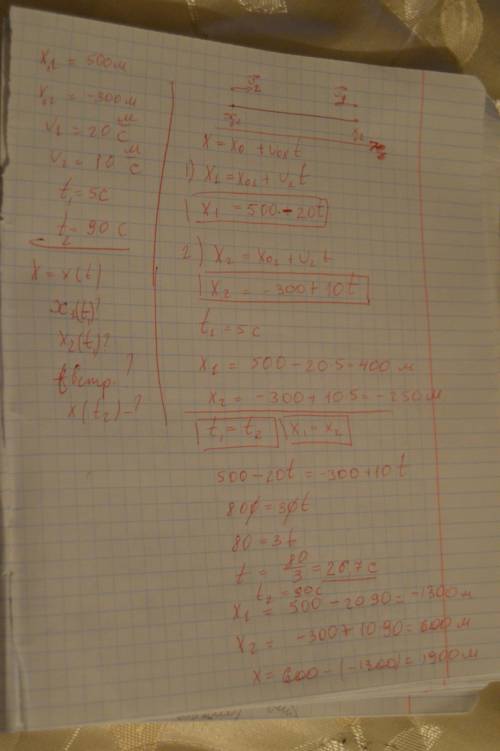 x₀₁ = 500 м
x₀₂ = -300 м
v₁ = 20 м/с
v₂ = 10 м/с
t₁ = 5с
t₂ = 90 с
x = x(t)
x₁(t₁)?
x₂(t₁)?
t встр. ?
x(t₂) - ?
x = x₀ + v₀ₓ t
1) x₁ = x₀₁ + v₁t
x₁ = 500 - 20t
2) x₂ = x₀₂ + v₂t
x₂ = -300 + 10t
t₁ = 5с
x₁ = 500 - 20·5 = 400 м
x₂ = -300 + 10·5 = -250 м
t₁ = t₂ x₁ = x₂
500 - 20t = -300 + 10t
800 = 30t
80 = 3t
t = 80/3 = 26,7 с
t₂ = 90с
x₁ = 500 - 20·90 = -1300 м
x₂ = -300 + 10·90 = 600 м
x = 600 - (-1300) = 1900 м